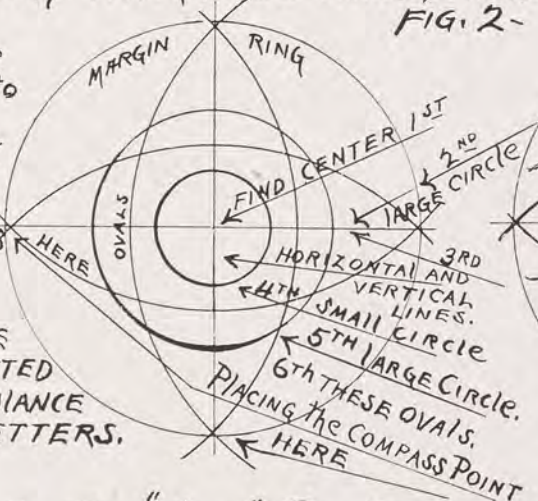 FIG. 2-
MARGIN RING
FIND CENTER 1ST
2ND
LARGE CIRCLE
OVALS
HERE
3RD
HORIZONTAL AND
VERTICAL
LINES.
4TH SMALL CIRCLE
5TH LARGE CIRCLE.
6Th THESE OVALS.
PLACING The COMPASS POINT
HERE
TTERS.